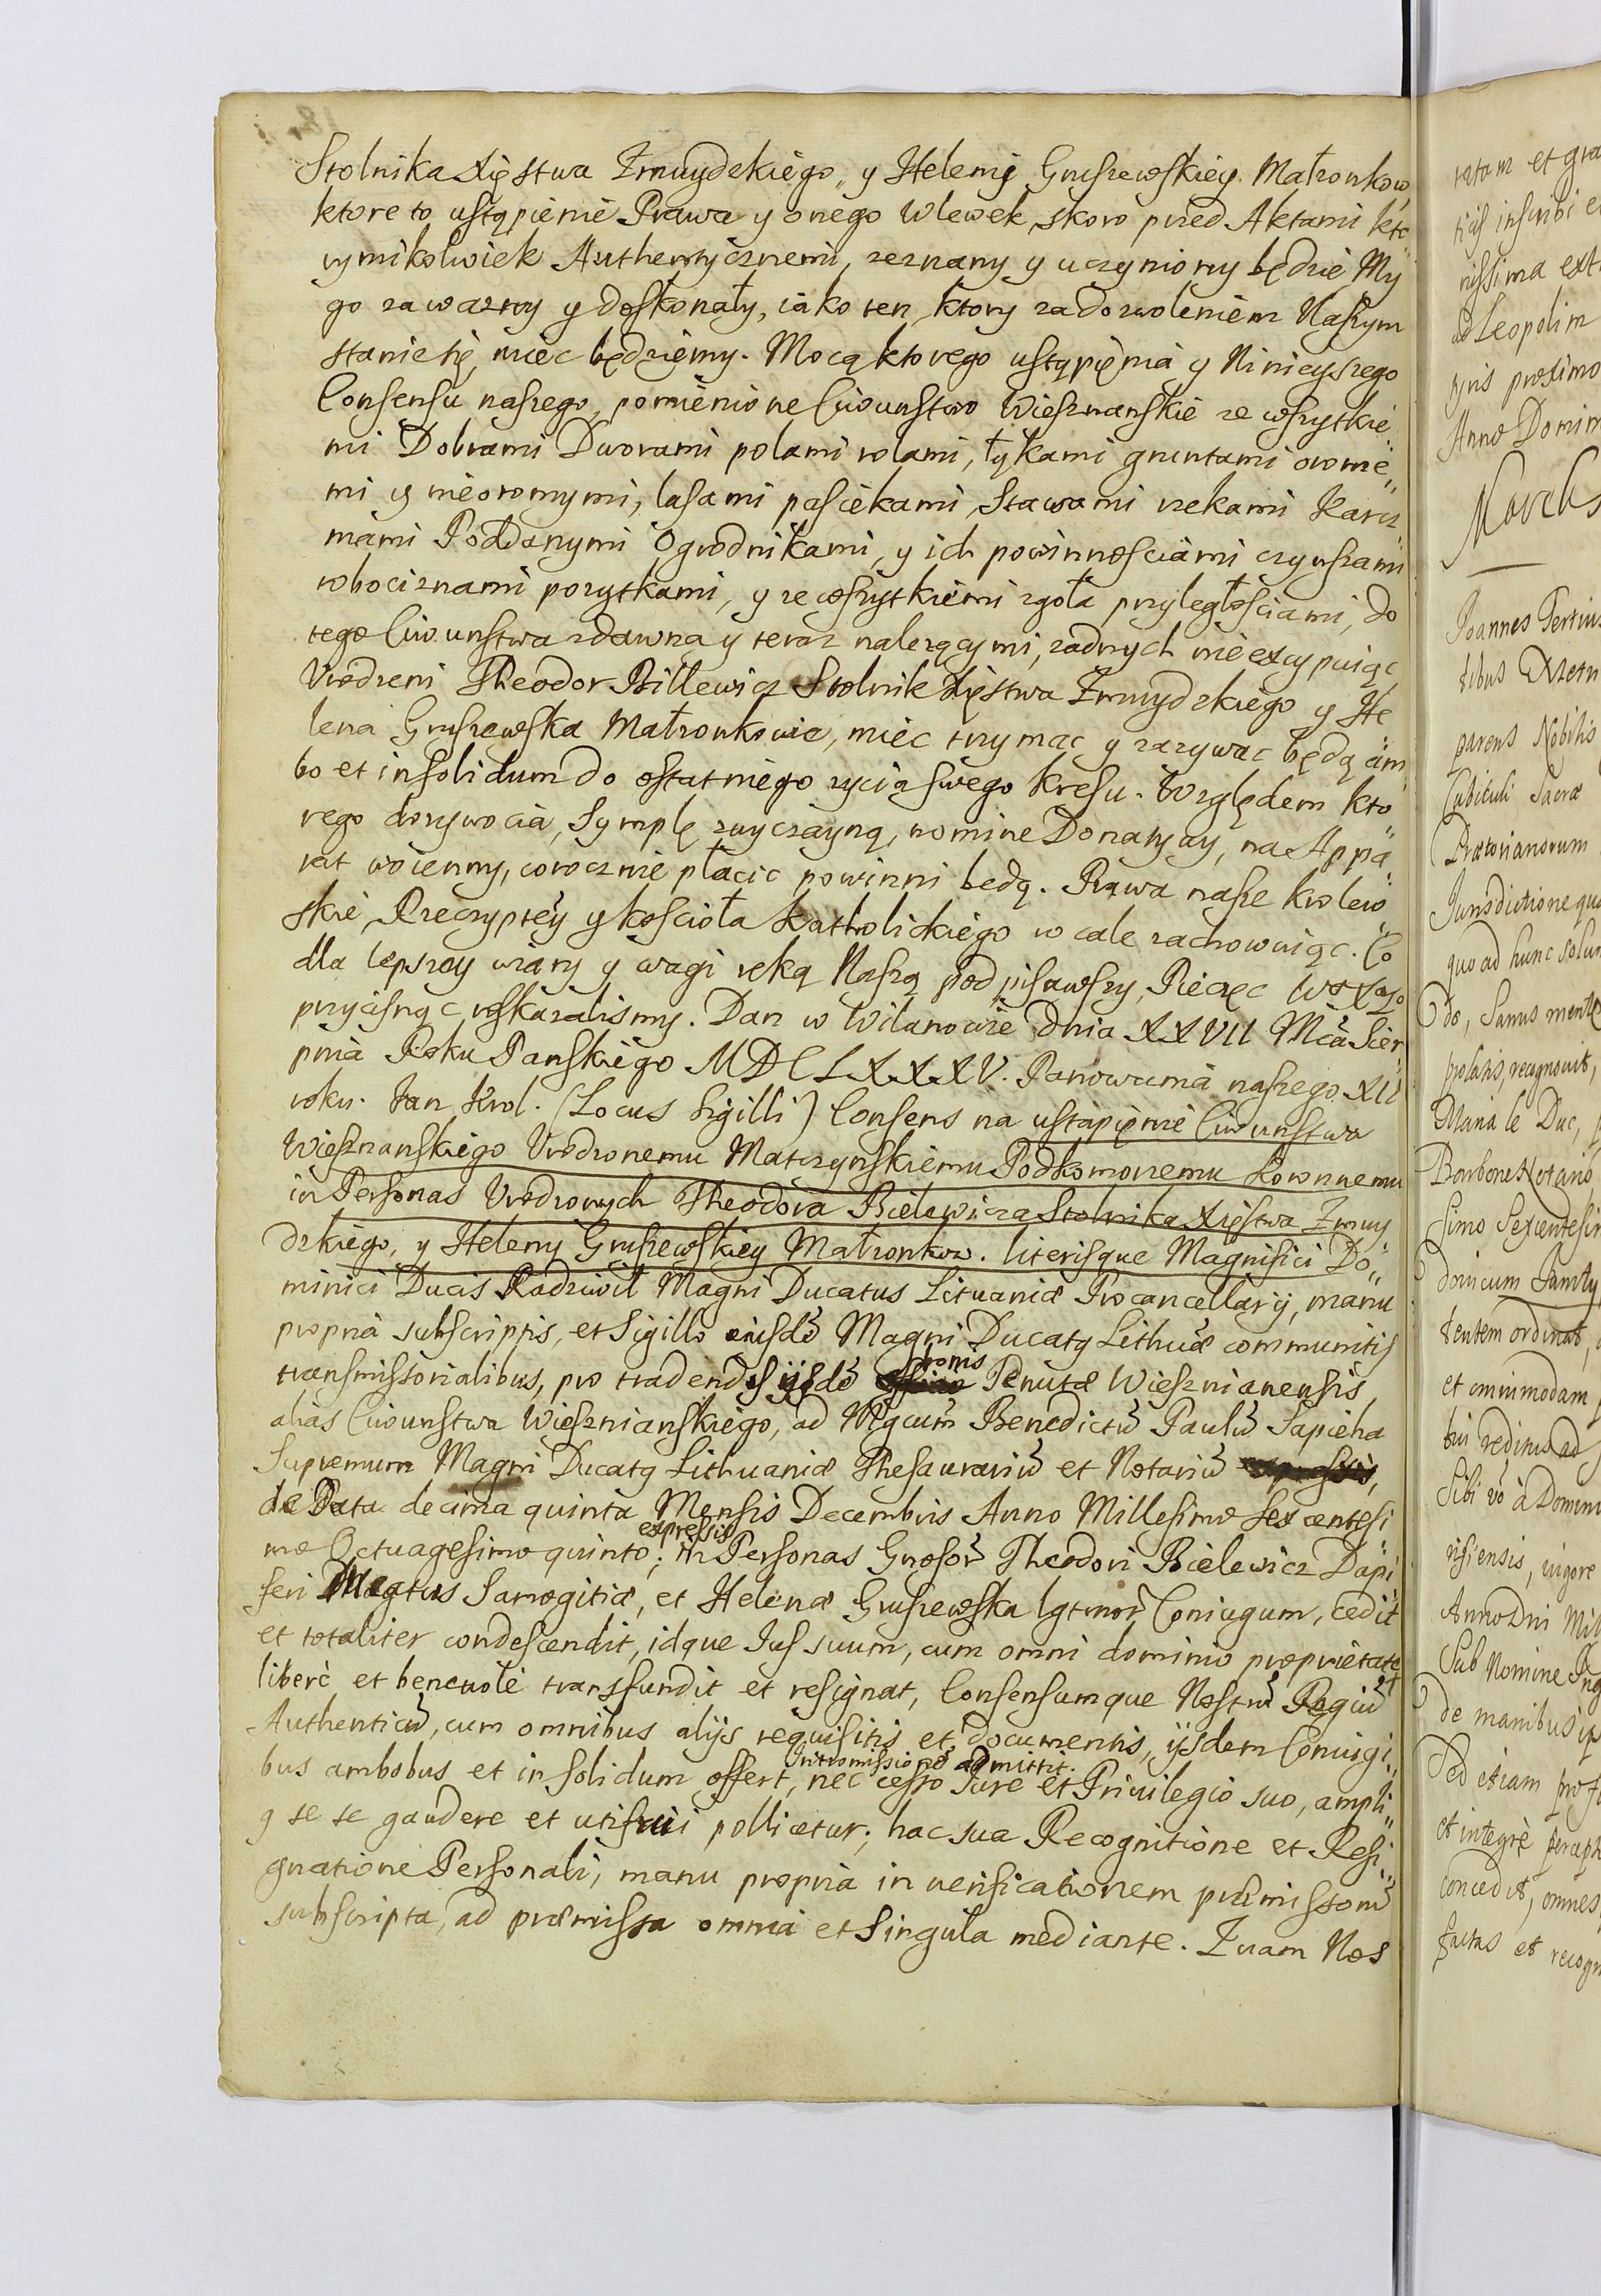 Stolnika Xięstwa Zmuydzkiego, y Heleny Gruszewskiey Małzonkow
ktore to ustąpienie Prawa y onego Wlewek, skoro przed Aktami kto
rymikolwiek Authentycznemi, zeznany y uczyniony będzie My
go za wazny y doskonały, iako ten, ktory za dozwoleniem Naszym
stanie się, miec będziemy. Mocą ktorego ustąpięnia y Ninieyszego
Consensu naszego, pomienione Ciwunstwo Wieszwanskie ze wszytkie„
mi Dobrami Dworami polami rolami, łąkami gruntami oromē„
mi y nieoromymi, lasami pasiekami, Stawami rzekami Karcz„
mami Poddanymi Ogrodnikami, y ich powinnosciami czynszami
robociznami pozytkami, y ze wszytkiemi zgoła przyległosciami, do
tego Ciwunstwa zdawna y teraz nalezącymi, zadnych nie excypuiąc
Urodzeni Theodor Billewicz Stolnik Xięstwa Zmuydzkiego y He
lena Gruszewska Małzonkowie, miec trzymac y zazywac będą am
bo et in solidum do ostatniego zycia swego kresu. Względem kto„
rego dozywocia, Symplę zwyczayną, nomine Donatywy, na Appa„
rat woienny, corocznie płacic powinni bedą. Prawa nasze krolew„
skie, Rzeczyptey y koscioła katholickiego w cale zachowuiąc. Co
dla lepszey wiary y wagi ręką Naszą podpisawszy, Pieczęc W X Lo
przycisnąc rozkazalismy. Dan w Wilanowie Dnia XXVII Mca Sier„
pnia Roku Panskiego MDCLXXXV. Panowania naszego XII
roku. Jan Krol. (Locus Sigilli) Consens na ustąpięnie Ciwunstwa
Wieszwanskiego Urodzonemu Matczynskiemu Podkomorzemu Koronnemu
in Personas Urodzonych Theodora Bielewicza Stolnika Xięstwa Zmuy
dzkiego, y Heleny Gruszewskiey Małzonkow. literisque Magnifici Do„
minici Ducis Radziwił Magni Ducatus Lituaniæ Procancellarij, manu
propria subscriptis, et Sigillo eiusdē Magni Ducatq Lithuæ communitis
transmissorialibus, pro tradendis ijsdē bonis Tenutæ Wiesznianensis
alias Ciwunstwa Wieszniańskiego, ad Mgcum Benedictū Paulū Sapieha
Supremum Magni Ducatq Lithuaniæ Thesaurariū et Notariū
de Data decima quinta Mensis Decembris Anno Millesimo sexcentesi
mo Octuagesimo quinto; expressis in Personas Gnrosor Theodori Bielewicz Dapi
feri Dcatus Samogitiæ, et Helenæ Gruszewska lgtmor Coniugum, cedit
et totaliter condescendit, idque Jus suum, cum omni dominio proprietate
liberè et benevolè transfundit et resignat, Consensumque Nostrū Regiū
Authenticū, cum omnibus alijs requisitis et documentis, ijsdem Coniugi„
bus ambobus et in solidum offert, Intromissionē admittit. nec cesso Jure et Privilegio suo, ampli„
q se se gaudere et utifrui pollicetur; hac sua Recognitione et Resi„
gnatione Personali, manu propria in verificationem præmissorū
subscripta, ad præmissa omnia et Singula mediante. Quam Nos
ratam et gra
nissima ext
ad Leopolim
proximo
Anno Domin
Joannes Tertius
parens Nobilis
Cubiculi Sacræ
Prætorianorum
Jurisdictione qua
quo ad hunc solum
do, Sanus mente
prolatis, recognovit,
Maria le Duc,
Borbone Notario
simo Sexcentesim
tentem ordinat,
et omnimodam
bui reditus ad
Sibi vō à Domin
risiensis, vigore
Anno Dni Mil
Sub Nomine
de manibus
Sed etiam
et integrè percep
concedit, omnes
factas et recogn